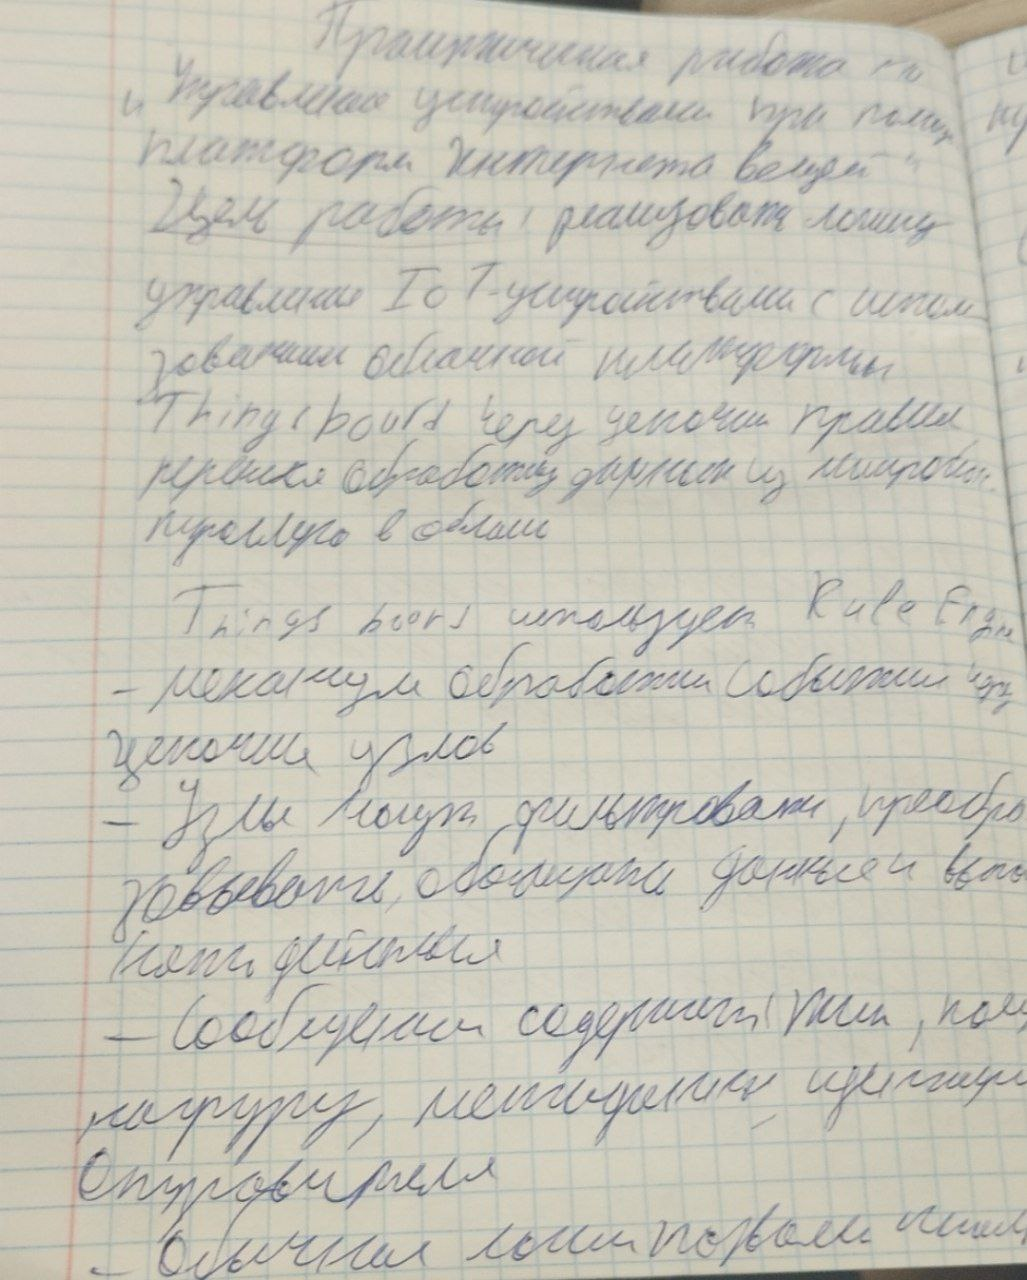 Практическая работа по
"Управление устройствами при помощи
платформ Интернета вещей"
Цель работы: реализовать логику
управления IoT-устройствами с исполь
зованием облачной платформы
Thingsboard через цепочки правил
обработку данных из
в облаке
Thingsboard использует Rule Engine
- механизм обработки событий через
цепочки узлов
- Узлы могут фильтровать, преобра
зовывать, обогащать данные и выпо
нять действия
- Сообщения содержат: тип, поле
нагрузку, метаданные, идентифи
отправителя
- Облачная логика